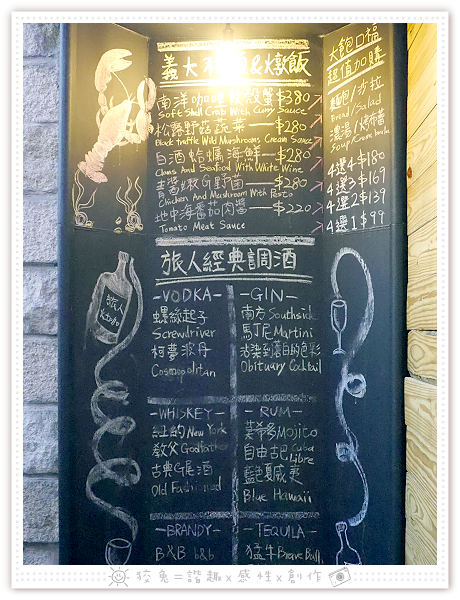 義大利麵&燉飯
南洋咖哩軟殼蟹 $380
Soft Shell Crab With Curry Sauce
松露野菇蔬菜 — $280
Black truffle Wild Mushrooms Cream Sauce
白酒蛤蠣海鮮 — $280
Clams And Seafood With White Wine
青醬嫩G野菌 — $280
Chicken And Mushroom With Pesto
地中海番茄肉醬 — $220
Tomato Meat Sauce
大飽口福
超值加購
麵包/沙拉
Bread/Salad
濃湯/烤布蕾
Soup/
4選4 $180
4選3 $169
4選2 $139
4選1 $99
旅人經典調酒
-VODKA-
螺絲起子
Screwdriver
柯夢波丹
Cosmopolitan
-GIN-
南方 Southside
馬丁尼 Martini
沾染到蒼白的色彩
Obituary Cocktail
-WHISKEY-
紐約 New York
教父 Godfather
古典G尾酒
Old Fashioned
-RUM-
莫希多 Mojito
自由古巴 Cuba
Libre
藍色夏威夷
Blue Hawaii
-BRANDY-
B&B b&b
-TEQUILA-
猛牛 Brave Bull
旅人
狡兔=諧趣x感性x創作